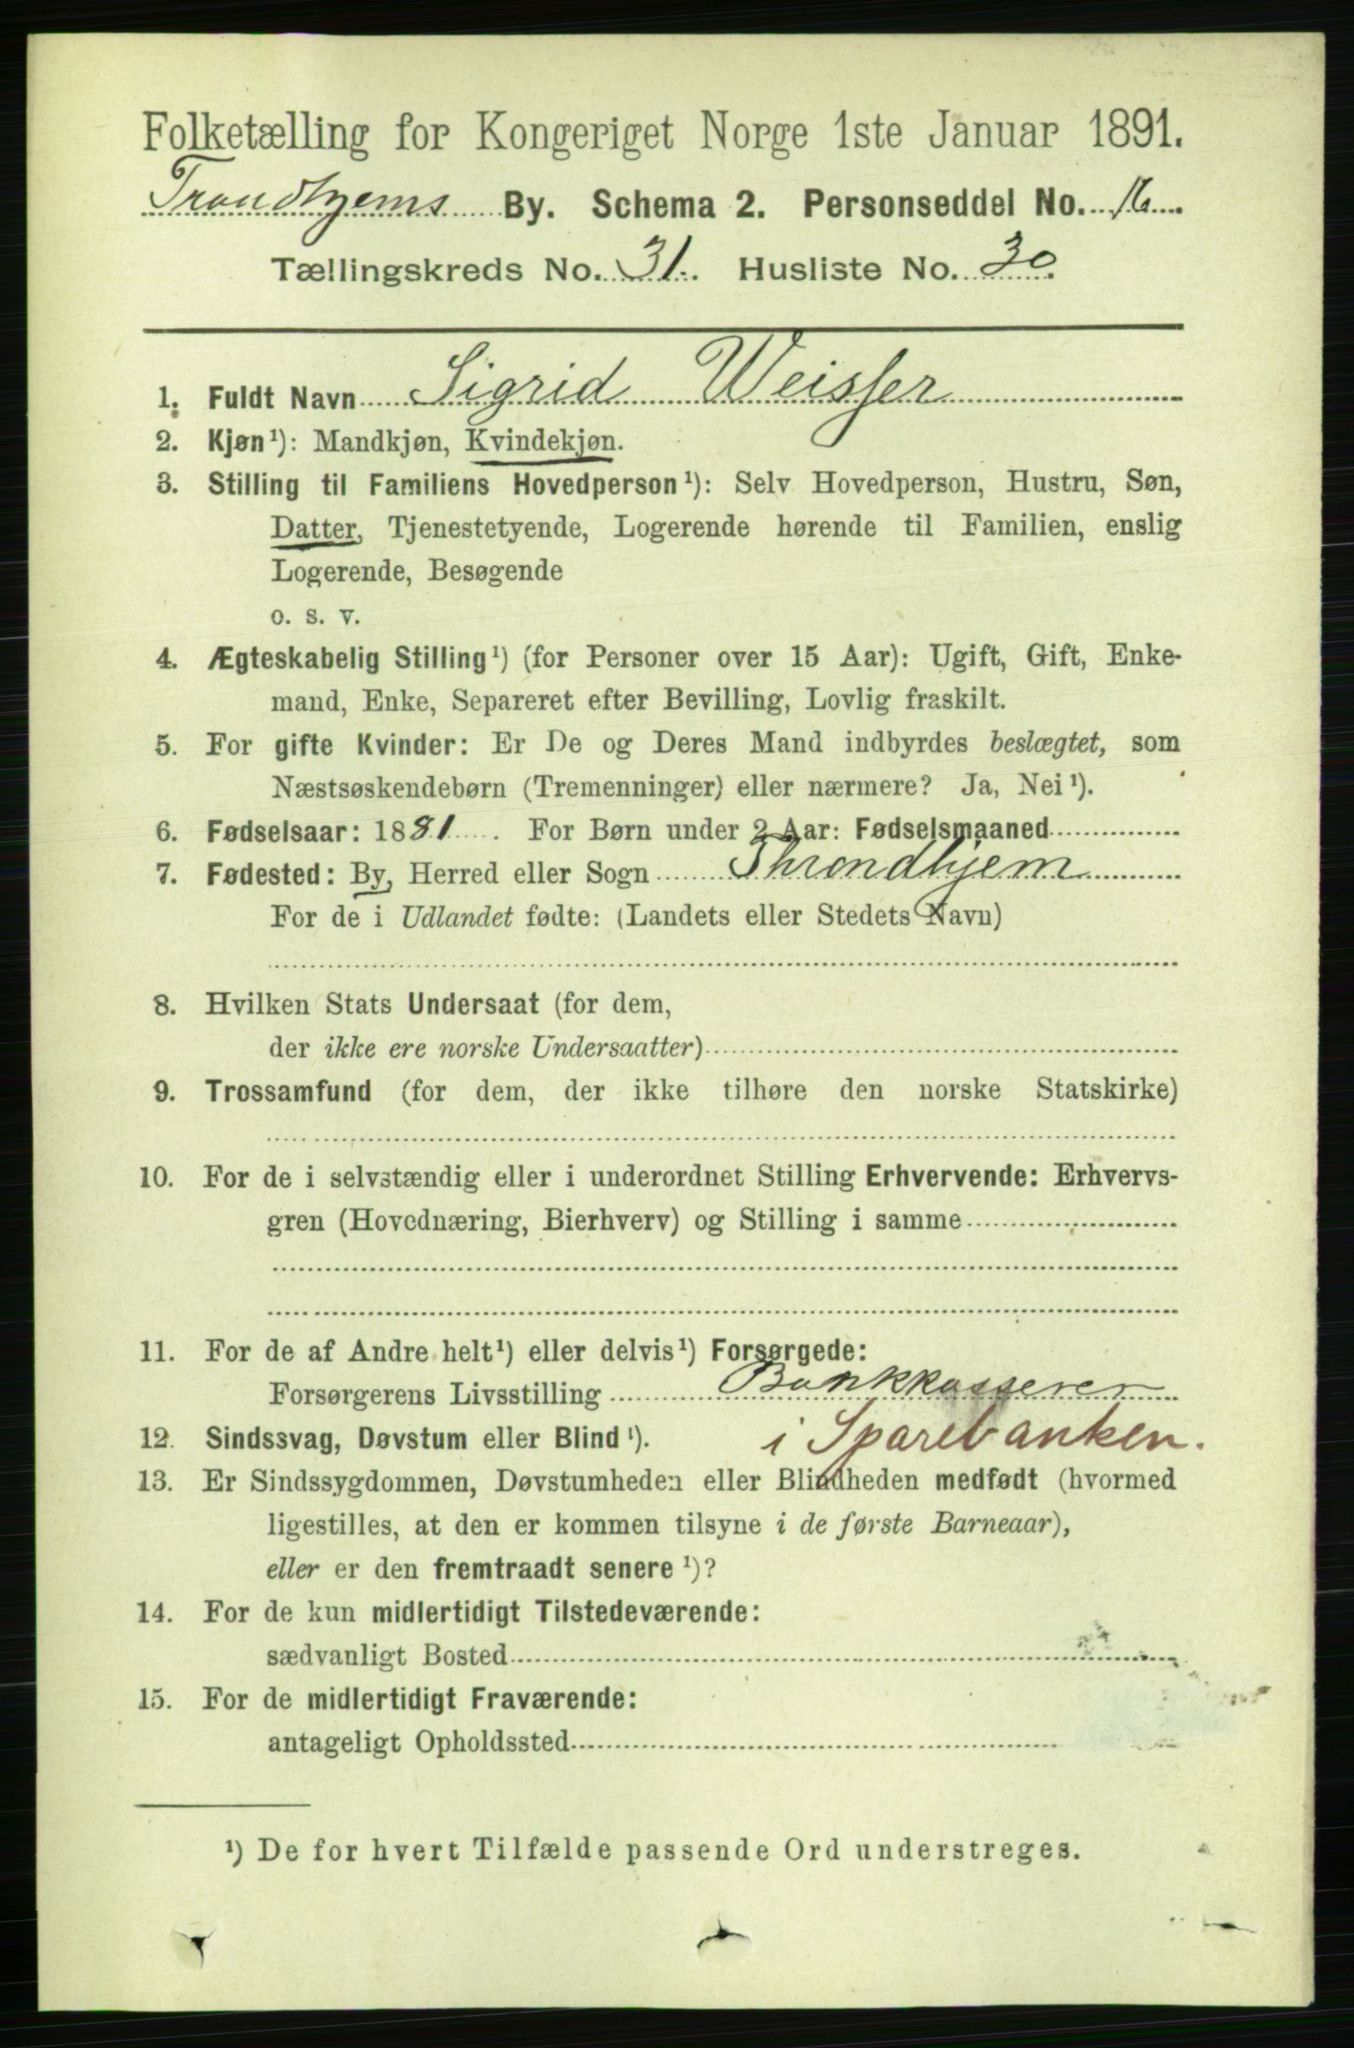 Folketælling for Kongeriget Norge 1ste Januar 1891.
Trondhjems By. Schema 2. Personseddel No. 16
Tællingskreds No. 31. Husliste No. 30.
1. Fuldt Navn Sigrid Weisser
2. Kjøn¹): Mandkjøn, Kvindekjøn.
3. Stilling til Familiens Hovedperson¹): Selv Hovedperson, Hustru, Søn,
Datter, Tjenestetyende, Logerende hørende til Familien, enslig
Logerende, Besøgende
o. s. v.
4. Ægteskabelig Stilling¹) (for Personer over 15 Aar): Ugift, Gift, Enke-
mand, Enke, Separeret efter Bevilling, Lovlig fraskilt.
5. For gifte Kvinder: Er De og Deres Mand indbyrdes beslægtet, som
Næstsøskendebørn (Tremenninger) eller nærmere? Ja, Nei¹).
6. Fødselsaar: 1881. For Børn under 2 Aar: Fødselsmaaned
7. Fødested: By, Herred eller Sogn Throndhjem
For de i Udlandet fødte: (Landets eller Stedets Navn)
8. Hvilken Stats Undersaat (for dem,
der ikke ere norske Undersaatter)
9. Trossamfund (for dem, der ikke tilhøre den norske Statskirke)
10. For de i selvstændig eller i underordnet Stilling Erhvervende: Erhvervs-
gren (Hovednæring, Bierhverv) og Stilling i samme
11. For de af Andre helt¹) eller delvis¹) Forsørgede:
Forsørgerens Livsstilling Bankkasserer
12. Sindssvag, Døvstum eller Blind¹). i Sparebanken.
13. Er Sindssygdommen, Døvstumheden eller Blindheden medfødt (hvormed
ligestilles, at den er kommen tilsyne i de første Barneaar),
eller er den fremtraadt senere¹)?
14. For de kun midlertidigt Tilstedeværende:
sædvanligt Bosted
15. For de midlertidigt Fraværende:
antageligt Opholdssted
¹) De for hvert Tilfælde passende Ord understreges.